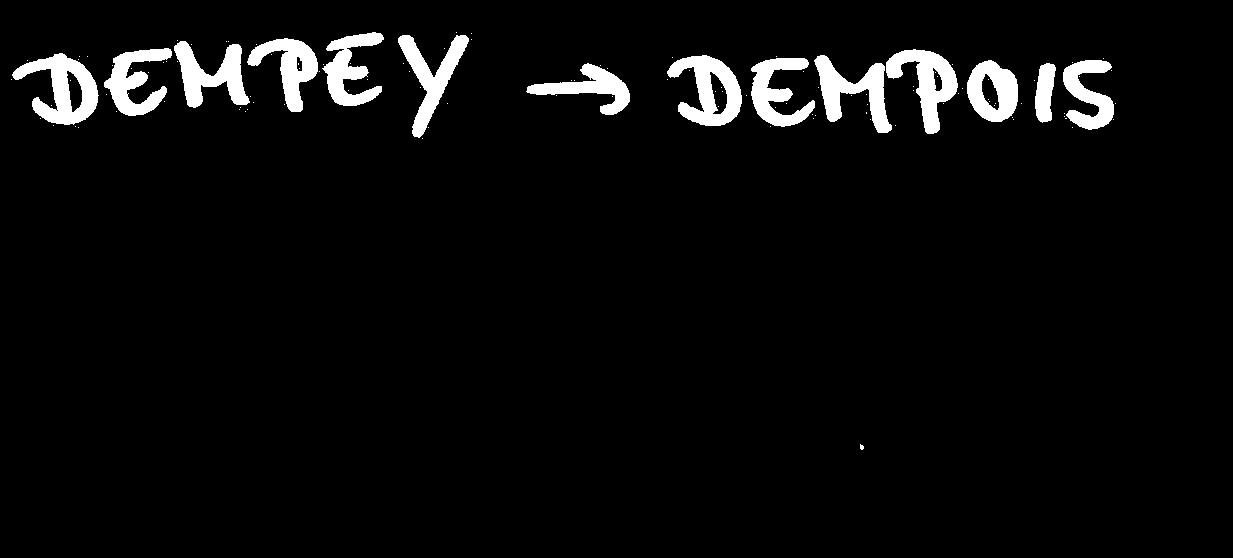 DEMPEY → DEMPOIS